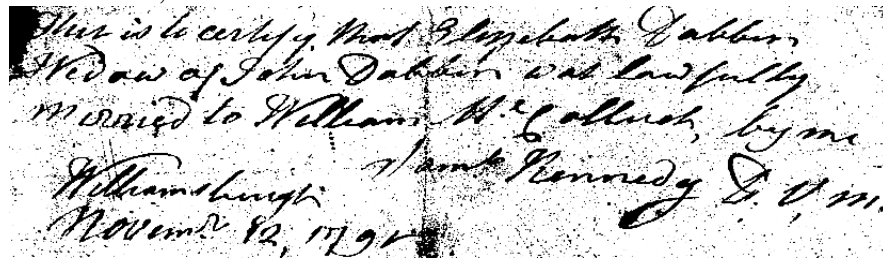 This is to certify that Elizabeth Dobbin
Wedow of John Dobbin was lawfully
married to William Mc Colluch, by me
Saml Kennedy D. V. M.
Williamsburgh
Novemr 12, 179